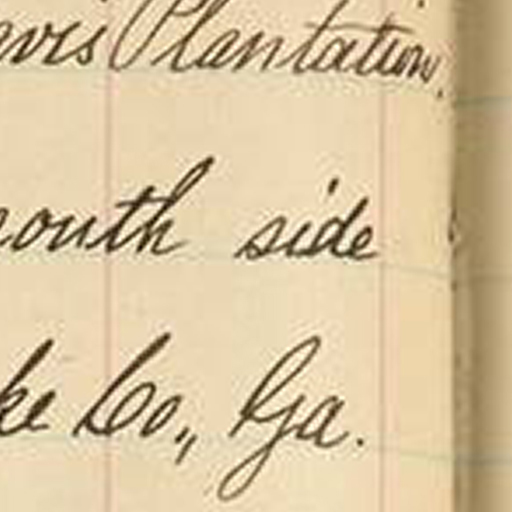 avis Plantation,
south side
ke Co., Ga.